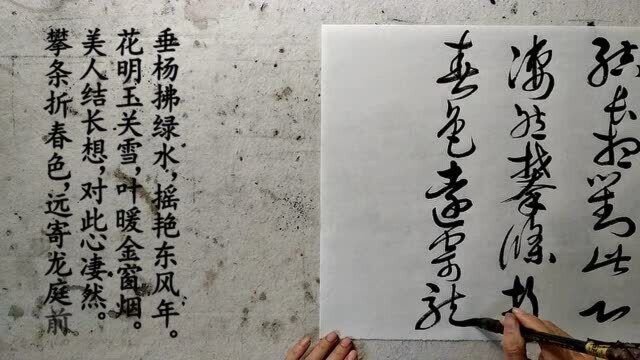 垂杨拂绿水，摇艳东风年。
花明玉关雪，叶暖金窗烟。
美人结长想，对此心凄然。
攀条折春色，远寄龙庭前。
結長想對此心
淒然攀條折
春色遠寄龍